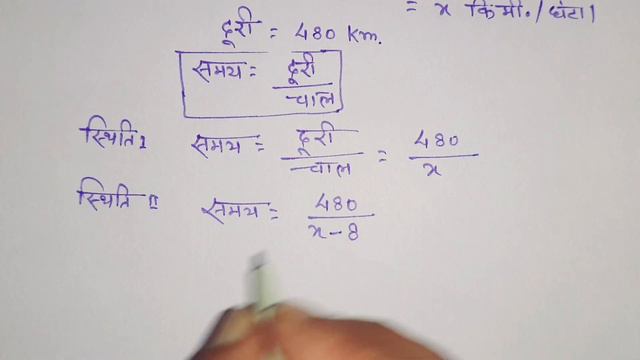 = x किमी०/घंटा।
दूरी = 480 Km.
समय = दूरी / चाल
स्थिति I समय = दूरी / चाल = 480 / x
स्थिति II समय = 480 / x - 8